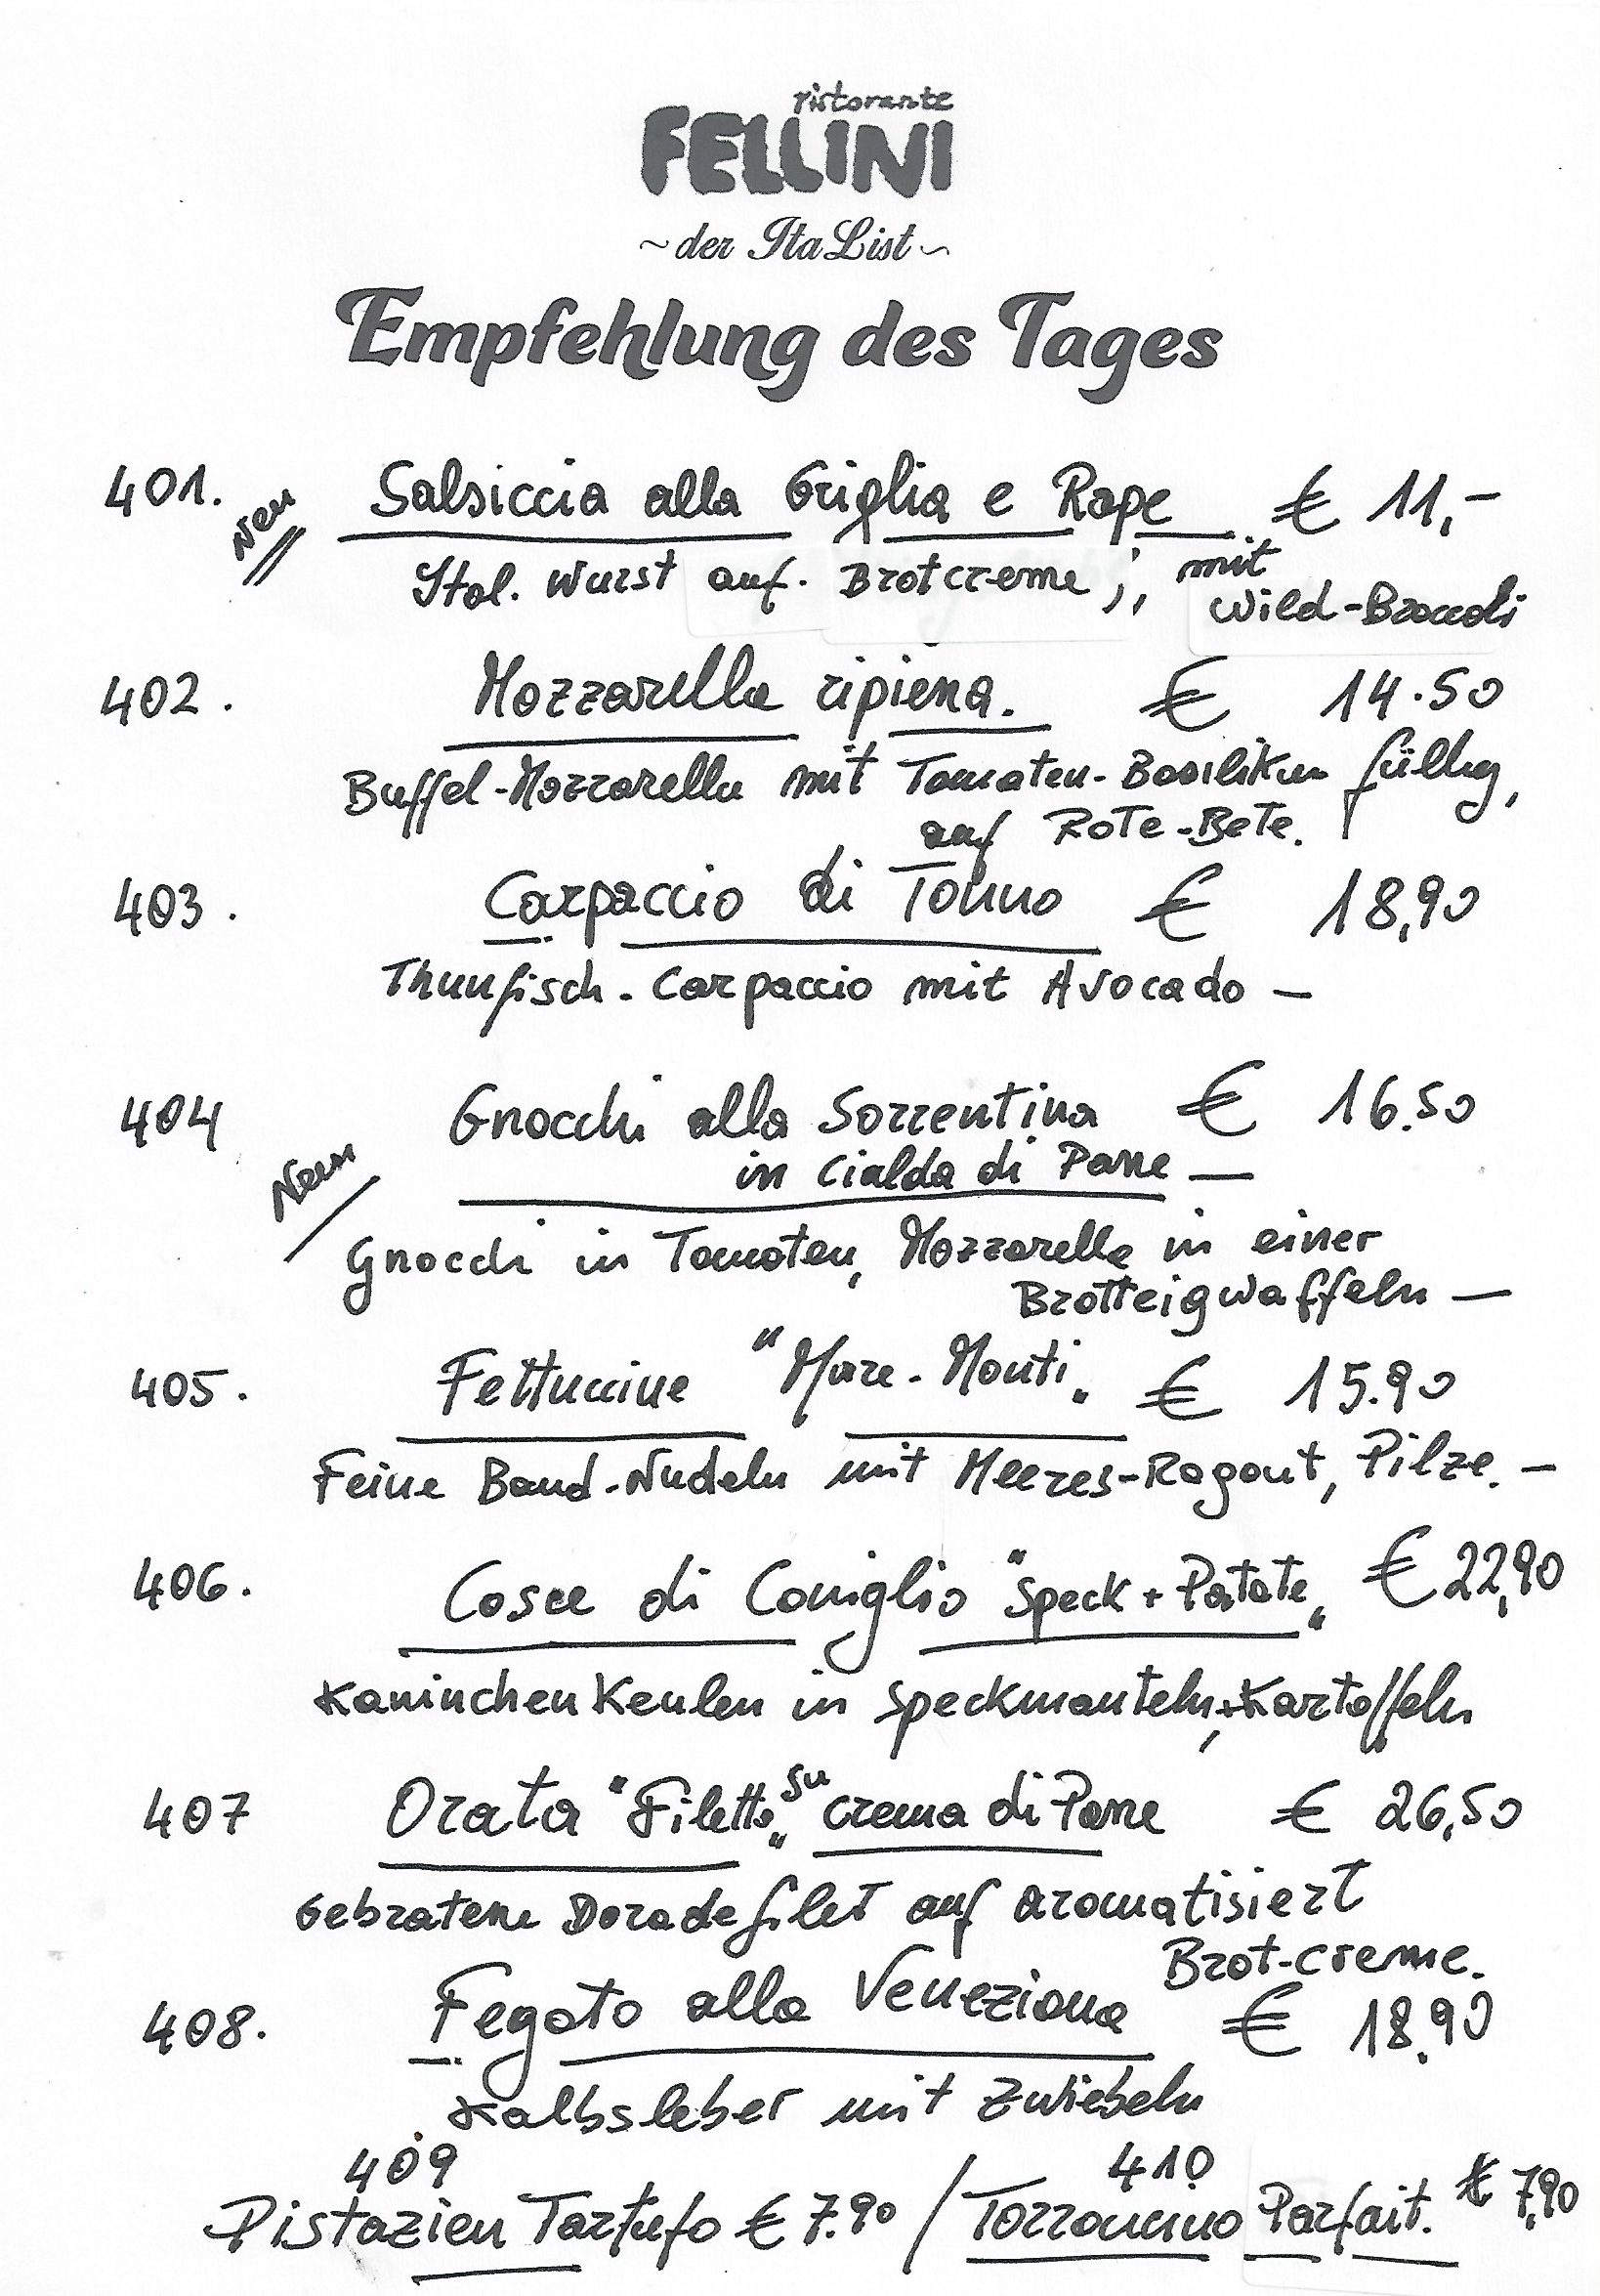 ristorante
FELLINI
~ der ItaList ~
Empfehlung des Tages
401. Neu Salsiccia alla Griglia e Rape € 11,-
Ital. Wurst auf. Brotcreme, mit
Wild-Broccoli
402. Mozzarella ripiena. € 14.50
Büffel-Mozzarella mit Tomaten-Basilikum füllung,
auf Rote-Bete.
403. Carpaccio di Tonno € 18,90
Thunfisch-Carpaccio mit Avocado —
404 Gnocchi alla Sorrentina € 16.50
Neu in Cialda di Pane —
Gnocchi in Tomaten, Mozzarella in einer
Brotteigwaffeln —
405. Fettuccine "Mare-Monti" € 15.90
Feine Band-Nudeln mit Meeres-Ragout, Pilze. —
406. Cosce di Coniglio "Speck + Patate" € 22,90
Kaninchen Keulen in Speckmanteln, + Kartoffeln
407 Orata "Filetto" su crema di Pane € 26,50
Gebratene Doradefilet auf aromatisiert
Brot-creme.
408. Fegato alla Veneziana € 18.90
Kalbsleber mit Zwiebeln
409 410
Pistazien Tartufo € 7.90 / Torroncino Parfait. € 7,90